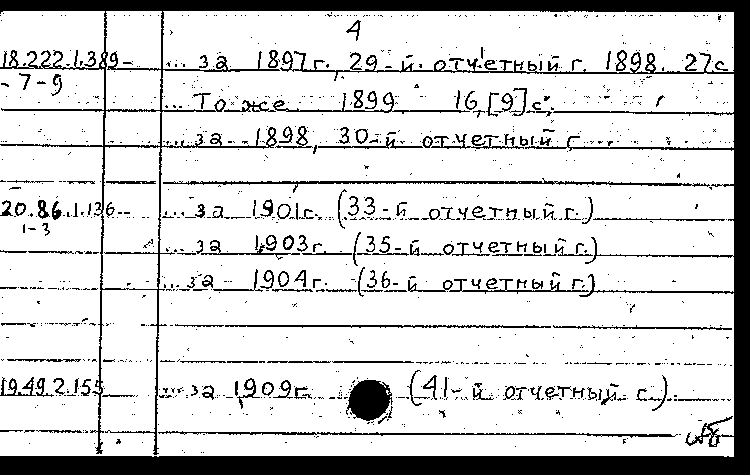 4
18.222.1.389- ... за 1897г., 29-й отчетный г. 1898. 27с
-7-9
... То же 1899. 16,[9]с.
... за 1898, 30-й отчетный г
20.86.1.136- ... за 1901г. (33-й отчетный г.)
1-3
... за 1903г. (35-й отчетный г.)
... за 1904г. (36-й отчетный г.)
19.49.2.155 ... за 1909г (41-й отчетный г.).